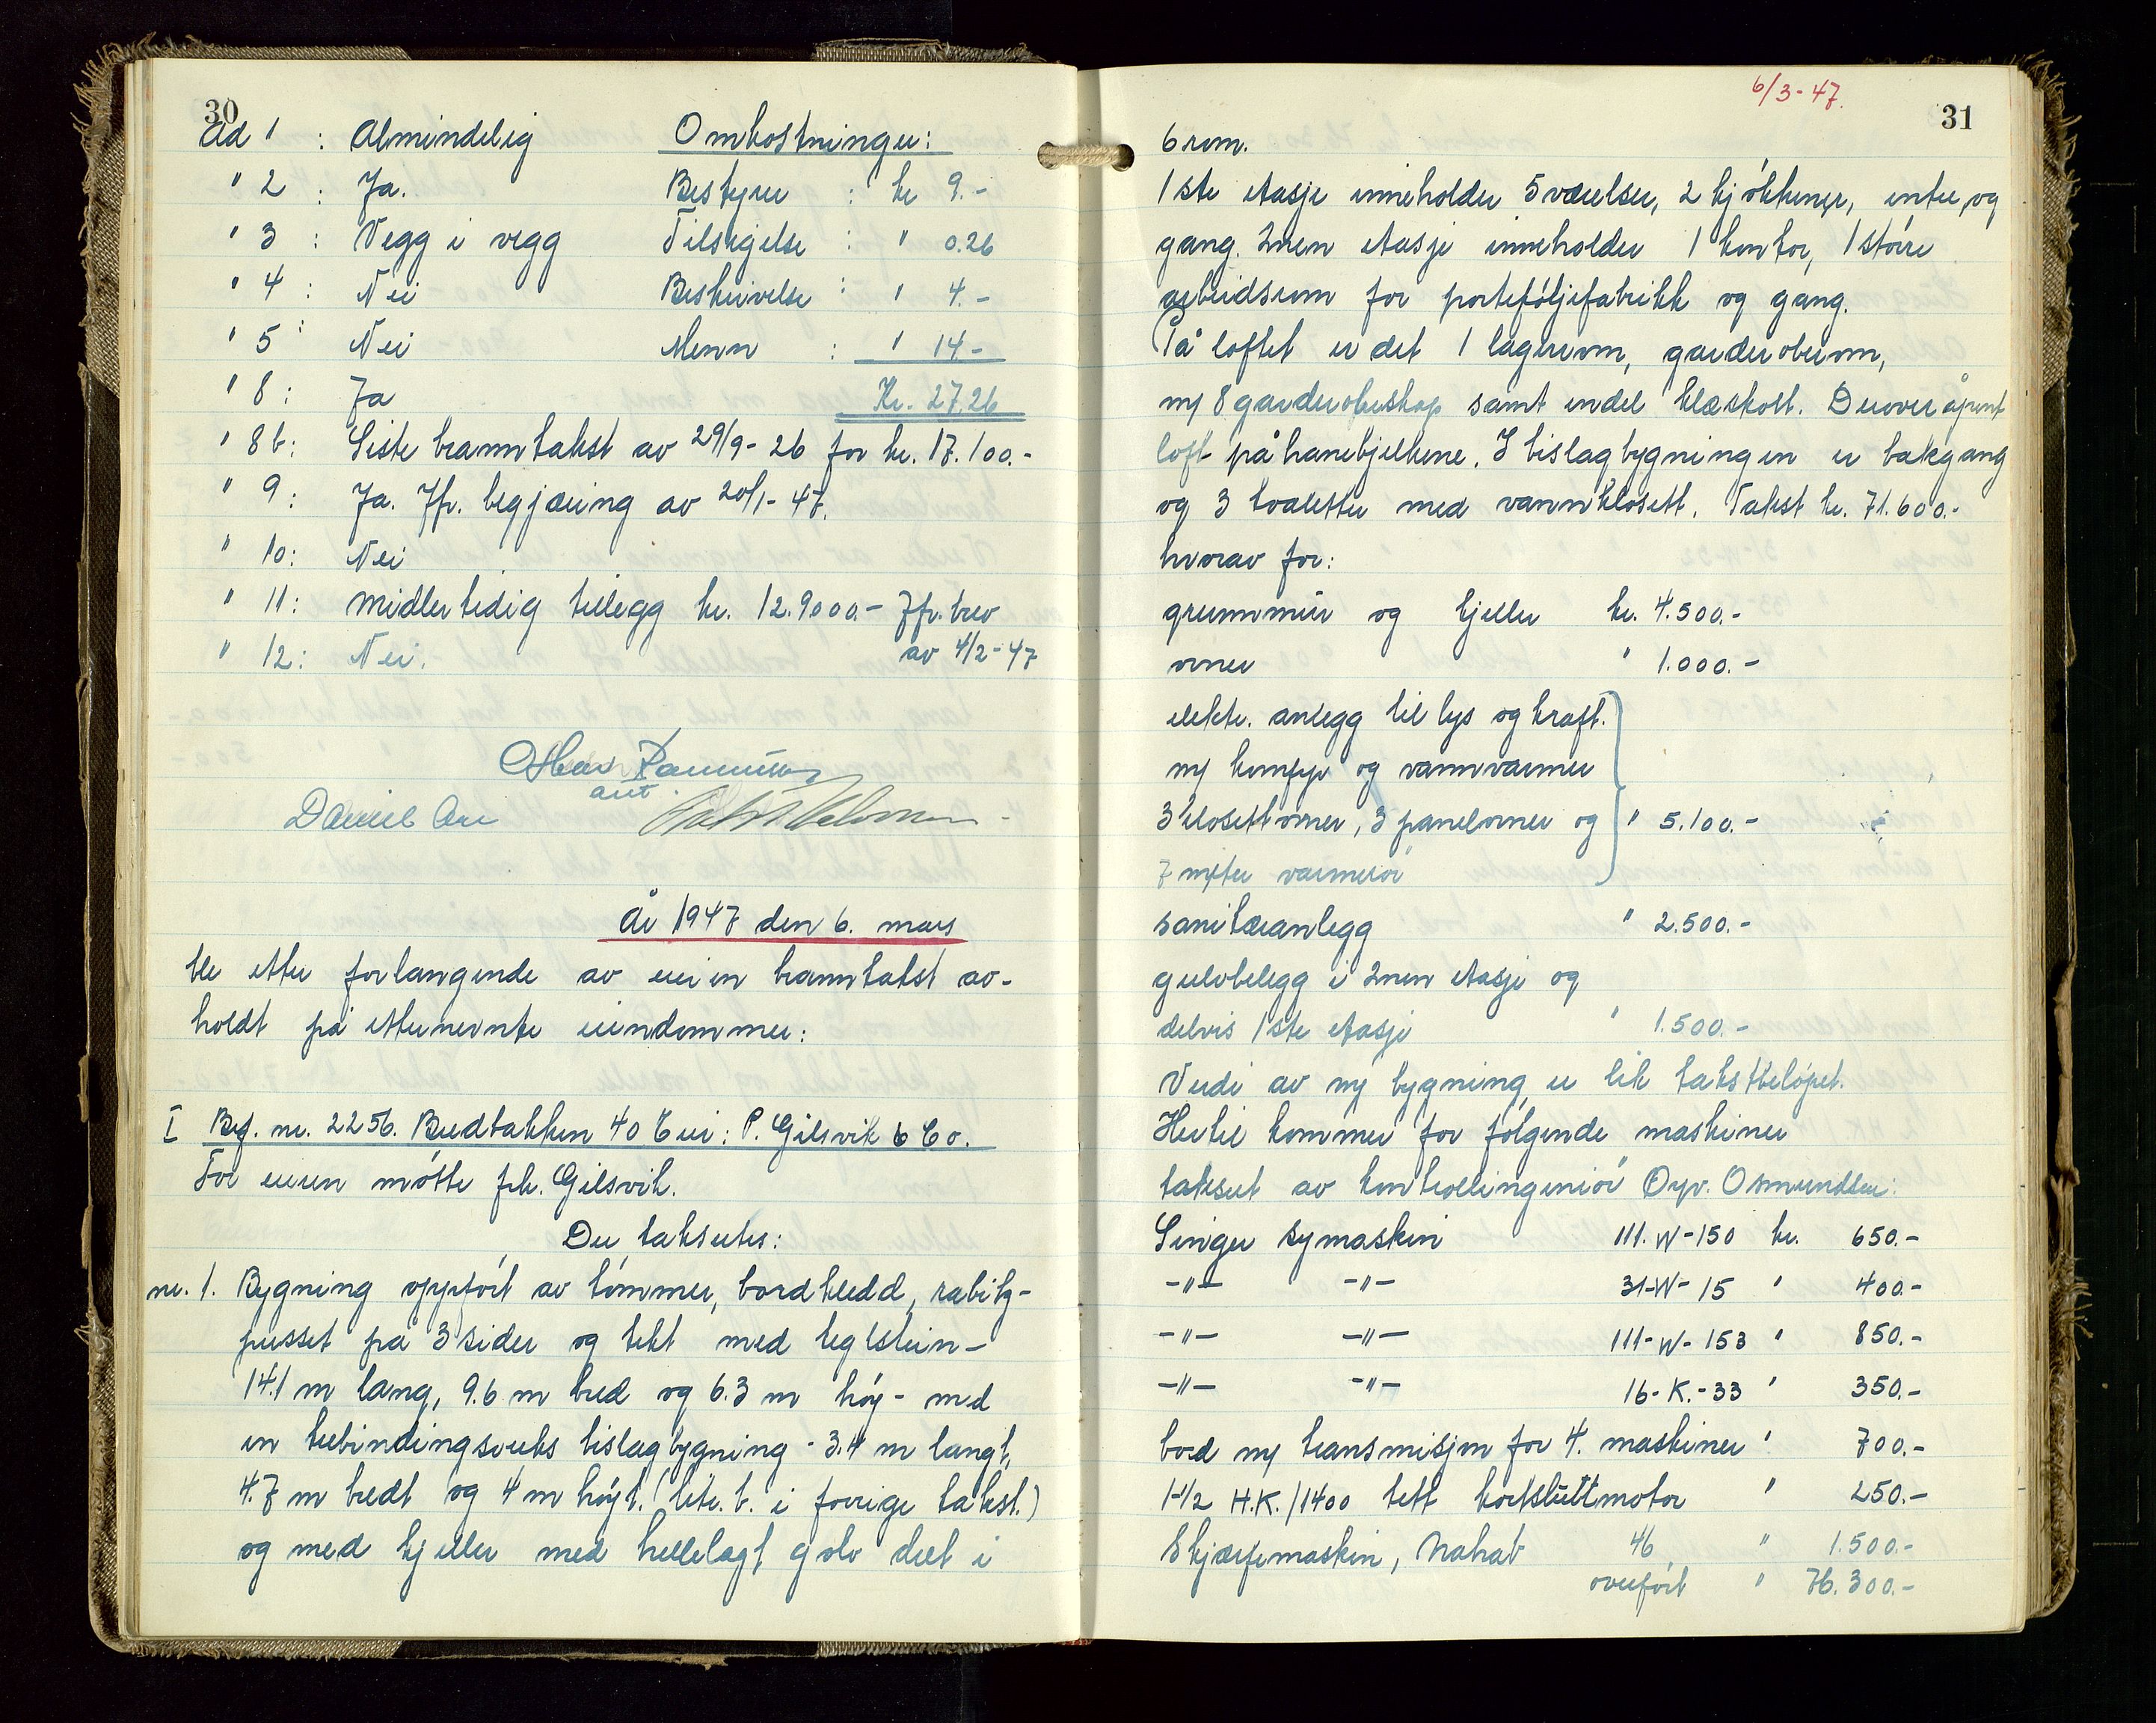 30
Ad 1 : Almindelig Omkostninger:
" 2 : Ja. Bestyrer : kr 9.-
" 3 : Vegg i vegg Tilsigelse : " 0.26
" 4 : Nei Beskrivelse : " 4.-
" 5 : Nei Menn : " 14-
" 8 : Ja Kr. 27.26
" 8b: Siste branntakst av 29/9-26 for kr. 17.100.-
" 9 : Ja. Jfr. begjæring av 20/1-47.
" 10: Nei
" 11: midlertidig tillegg kr. 12.9000.- Jfr. brev
av 4/2-47
" 12: Nei.
Rasmussen
ass.
Daniel Aae
År 1947 den 6. mars
ble etter forlangende av eieren branntakst av-
holdt på etternevnte eiendommer:
I Brf. nr. 2256. Bredbakken 40 Eier: P. Gilsvik & Co.
For eieren møtte frk. Gilsvik.
Der takseres:
nr. 1. Bygning oppført av tømmer, bordkledd, rabitz-
pusset på 3 sider og tekt med teglstein-
14.1 m lang, 9.6 m bred og 6.3 m høy - med
en trebindingsverks bislagbygning - 3.4 m langt,
4.7 m bredt og 4 m høyt. (litr. b. i forrige takst.)
og med kjeller med hellelagt golv delt i
6/3-47.
31
6 rom.
1ste etasje inneholder 5 værelser, 2 kjøkkener, entre, og
gang. 2nen etasje inneholder 1 kontor, 1 større
arbeidsrom for porteføljefabrikk og gang.
På loftet er det 1 lagerrom, garderoberom,
m/ 8 garderobeskap samt endel kleskott. Derover åpent
loft på hanebjelkene. I bislagbygningen er bakgang
og 3 toaletter med vannklosett. Takst kr. 71.600.-
hvorav for:
grunnmur og kjeller kr. 4.500.-
ovner " 1.000.-
elektr. anlegg til lys og kraft.
m/ komfyr og vannvarmer
3 klosettovner, 3 panelovner og " 5.100.-
7 meter varmerør
sanitæranlegg " 2.500.-
gulvbelegg i 2nen etasje og
delvis 1ste etasje " 1.500.-
Verdi av ny bygning er lik takstbeløpet.
Hertil kommer for følgende maskiner
taksert av kontrollingeniør Osmundsen:
Singer symaskin 111.W-150 kr. 650.-
-"- -"- 31-W-15 " 400.-
-"- -"- 111-W-153 " 850.-
-"- -"- 16-K.-33 " 350.-
bord m/ transmisjon for 4. maskiner " 700.-
1-1/2 H.K./1400 tett kortsluttmotor " 250.-
Skjærfemaskin, Nahab 46 " 1.500.-
overført " 76.300.-